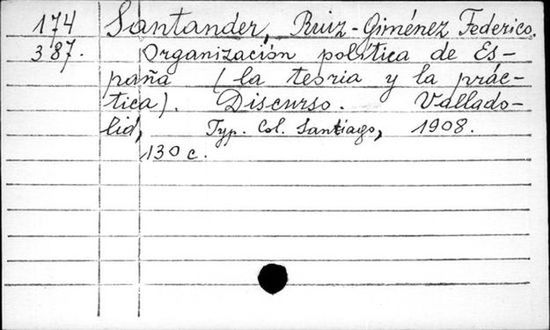 174 Santander, Ruiz-Giménez Federico.
387. Organización política de Es-
paña (la teoria y la prác-
tica). Discurso. Vallado-
lid, Typ. Col. Santiago, 1908.
130 c.